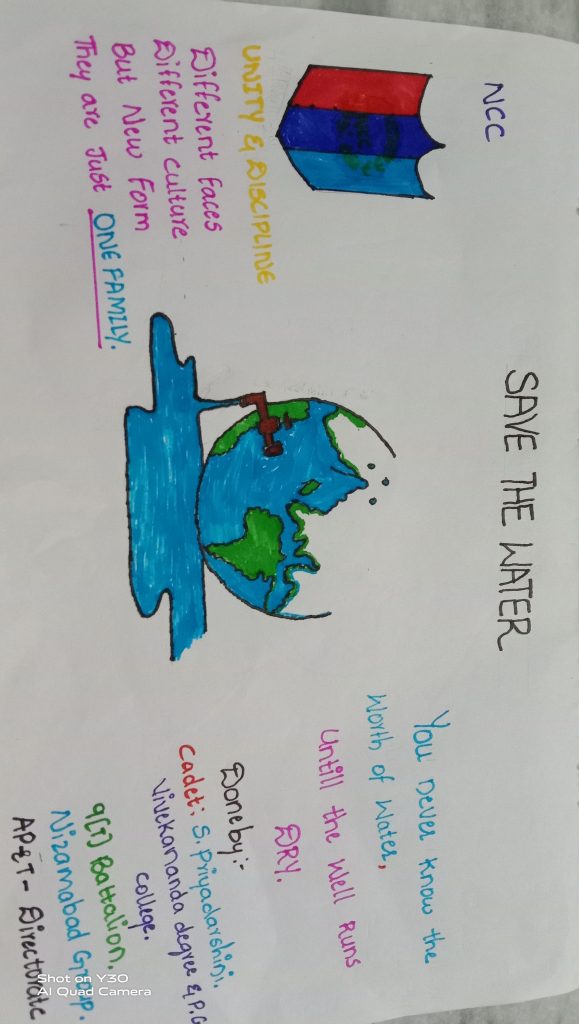 NCC
SAVE THE WATER
UNITY & DISCIPLINE
Different faces
Different culture
But New Form
They are Just ONE FAMILY.
You never know the
Worth of Water,
Untill the Well Runs
DRY.
Doneby:-
Cadet: S. Priyadarshini.
Vivekananda degree & P.G
college.
9(T) Battalion.
Nizamabad Group.
AP&T - Directorate
Shot on Y30
AI Quad Camera